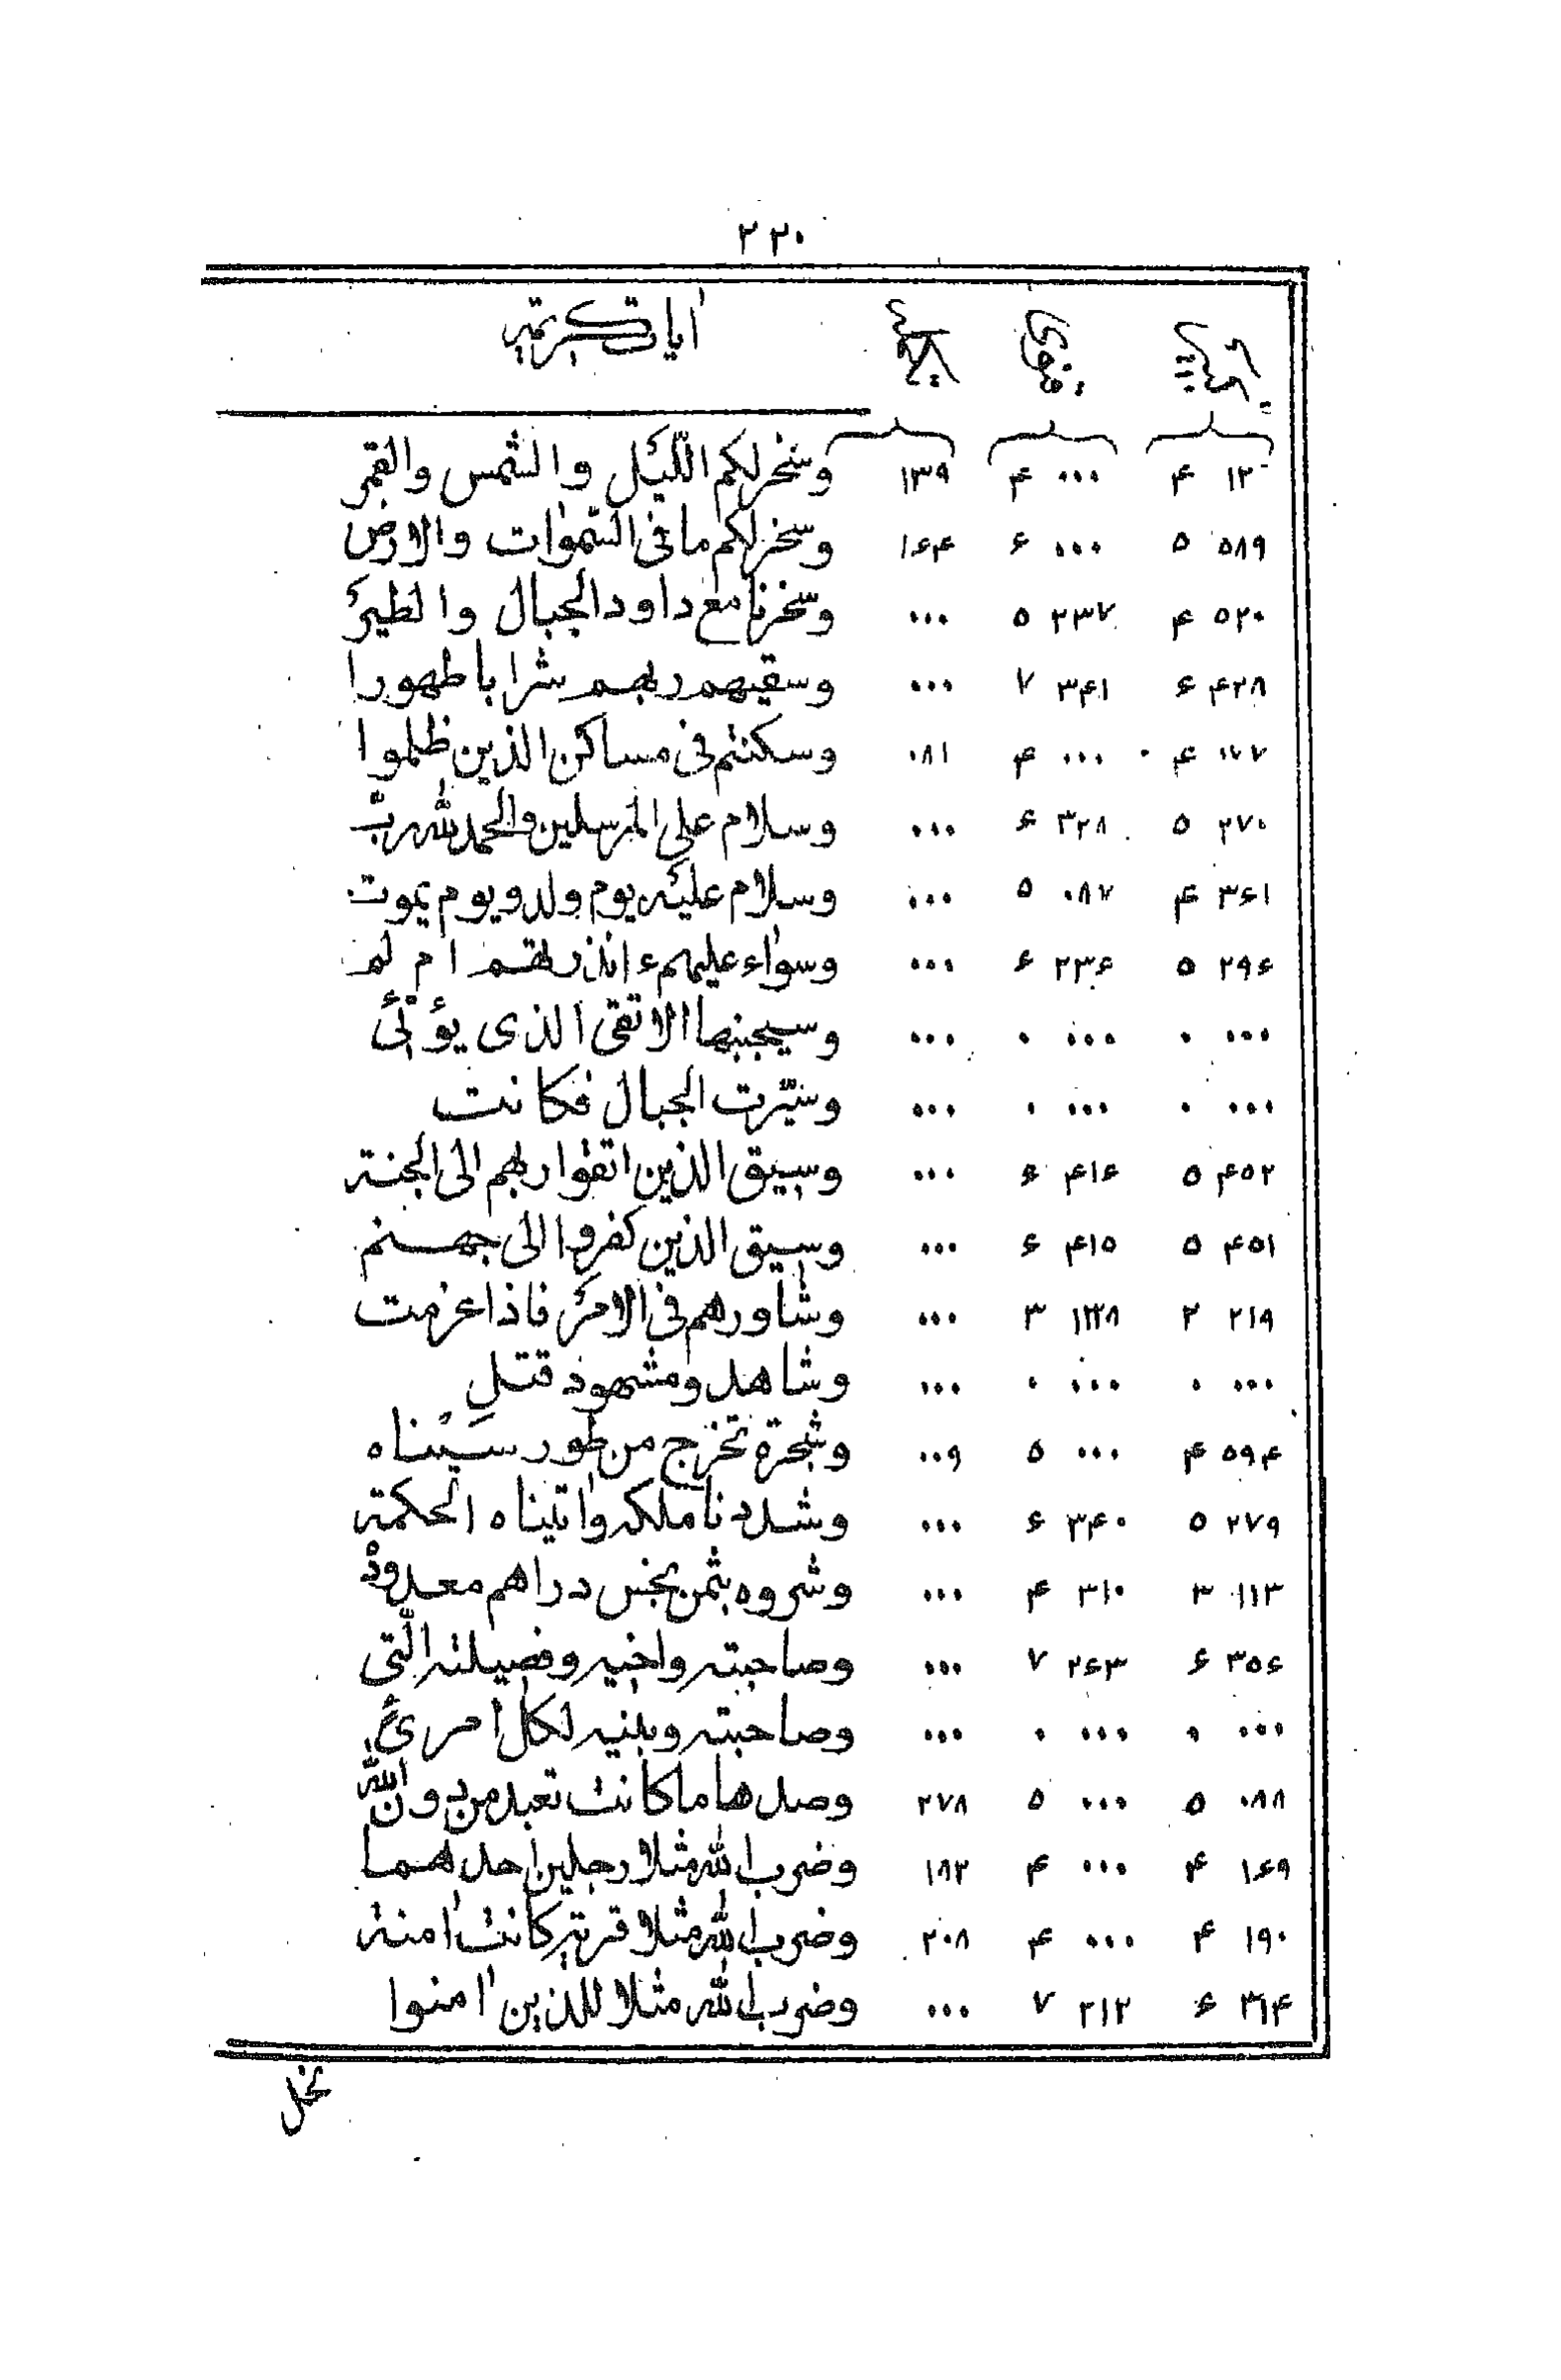 ۲۲۰
اٰیات کریمه
۱۲۰ ۴ ۰۰۰ ۴ ۱۳۹ وسخر لکم اللیل والشمس والقمر
۵۸۹ ۵ ۰۰۰ ۶ ۱۶۴ وسخر لکم ما فی السموات والارض
۵۲۰ ۴ ۲۳۷ ۵ ۰۰۰ وسخرنا مع داود الجبال والطیر
۴۲۸ ۶ ۳۴۱ ۷ ۰۰۰ وسقیهم ربهم شرابا طهورا
۰۷۷ ۴ ۰۰۰ ۴ ۰۸۱ وسکنتم فی مساکن الذین ظلموا
۲۷۰ ۵ ۳۲۸ ۶ ۰۰۰ وسلام علی المرسلین والحمد لله رب
۳۶۱ ۴ ۰۸۷ ۵ ۰۰۰ وسلام علیه یوم ولد ویوم یموت
۲۹۶ ۵ ۲۳۶ ۶ ۰۰۰ وسواء علیهم ءانذرتهم ام لم
۰۰۰ ۰ ۰۰۰ ۰ ۰۰۰ وسیجنبها الاتقی الذی یؤتی
۰۰۰ ۰ ۰۰۰ ۰ ۰۰۰ وسیرت الجبال فکانت
۴۵۲ ۵ ۴۱۶ ۶ ۰۰۰ وسیق الذین اتقوا ربهم الی الجنة
۴۵۱ ۵ ۴۱۵ ۶ ۰۰۰ وسیق الذین کفروا الی جهنم
۲۱۹ ۲ ۱۳۸ ۳ ۰۰۰ وشاورهم فی الامر فاذا عزمت
۰۰۰ ۰ ۰۰۰ ۰ ۰۰۰ وشاهد ومشهود قتل
۵۹۴ ۴ ۰۰۰ ۵ ۰۰۹ وشجرة تخرج من طور سَیْناه
۲۷۹ ۵ ۳۴۰ ۶ ۰۰۰ وشددنا ملکه واتیناه الحکمة
۱۱۳ ۳ ۳۱۰ ۴ ۰۰۰ وشروه بثمن بخس دراهم معدود
۳۵۶ ۶ ۲۶۳ ۷ ۰۰۰ وصاحبته واخیه وفصیلته الّتی
۰۰۰ ۰ ۰۰۰ ۰ ۰۰۰ وصاحبته وبنیه لکل امرئ
۰۸۸ ۵ ۰۰۰ ۵ ۲۷۸ وصدها ما کانت تعبد من دون الله
۱۶۹ ۴ ۰۰۰ ۴ ۱۸۲ وضرب الله مثلا رجلین احدهما
۱۹۰ ۴ ۰۰۰ ۴ ۲۰۸ وضرب الله مثلا قریة کانت اٰمنة
۳۱۴ ۶ ۲۱۲ ۷ ۰۰۰ وضرب الله مثلا للذین اٰمنوا